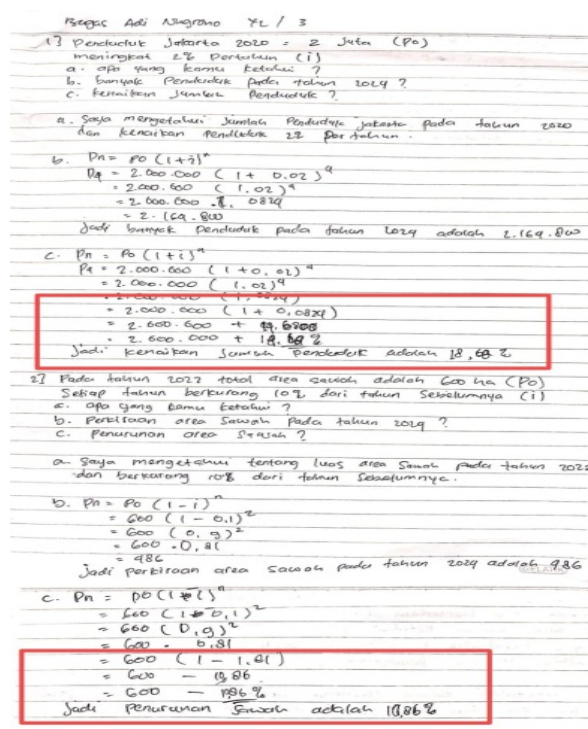 Bagas Adi Nugrono XL / 3
1] Penduduk Jakarta 2020 = 2 Juta (Po)
meningkat 2% Pertahun (i)
a. apa yang kamu ketahui ?
b. banyak Penduduk Pada tahun 2024 ?
c. kenaikan Jumlah Penduduk ?
a. Saya mengetahui Jumlah Penduduk jakarta Pada tahun 2020
dan kenaikan Penduduk 2% Per tahun.
b. Pn = Po (1+i)ⁿ
P4 = 2.000.000 ( 1 + 0,02 )⁴
= 2.000.000 ( 1.02 )⁴
= 2.000.000 . 1, 0824
= 2.164.800
Jadi banyak Penduduk pada tahun 2024 adalah 2.164.800
c. Pn = Po (1+i)ⁿ
P4 = 2.000.000 ( 1 + 0,02 )⁴
= 2.000.000 ( 1.02 )⁴
= 2.000.000 ( 1,0824 )
= 2.000.000 ( 1 + 0,0824 )
= 2.000.000 +
= 2.000.000 + %
Jadi kenaikan Jumlah Penduduk adalah 18, %
2] Pada tahun 2022 total area sawah adalah 600 ha (Po)
Setiap tahun berkurang 10% dari tahun Sebelumnya (i)
a. apa yang kamu ketahui ?
b. Perkiraan area Sawah Pada tahun 2024 ?
c. Penurunan area Sawah ?
a. Saya mengetahui tentang luas area Sawah Pada tahun 2022
dan berkurang 10% dari tahun Sebelumnya.
b. Pn = Po (1 - i)ⁿ
= 600 ( 1 - 0,1 )²
= 600 ( 0, 9 )²
= 600 . 0, 81
= 486
Jadi Perkiraan area sawah pada tahun 2024 adalah 486
c. Pn = Po ( 1 - i )ⁿ
= 600 ( 1 - 0,1 )²
= 600 ( 0,9 )²
= 600 . 0,81
= 600 ( 1 - 1.81 )
= 600 -
= 600 - %
Jadi Penurunan Sawah adalah %